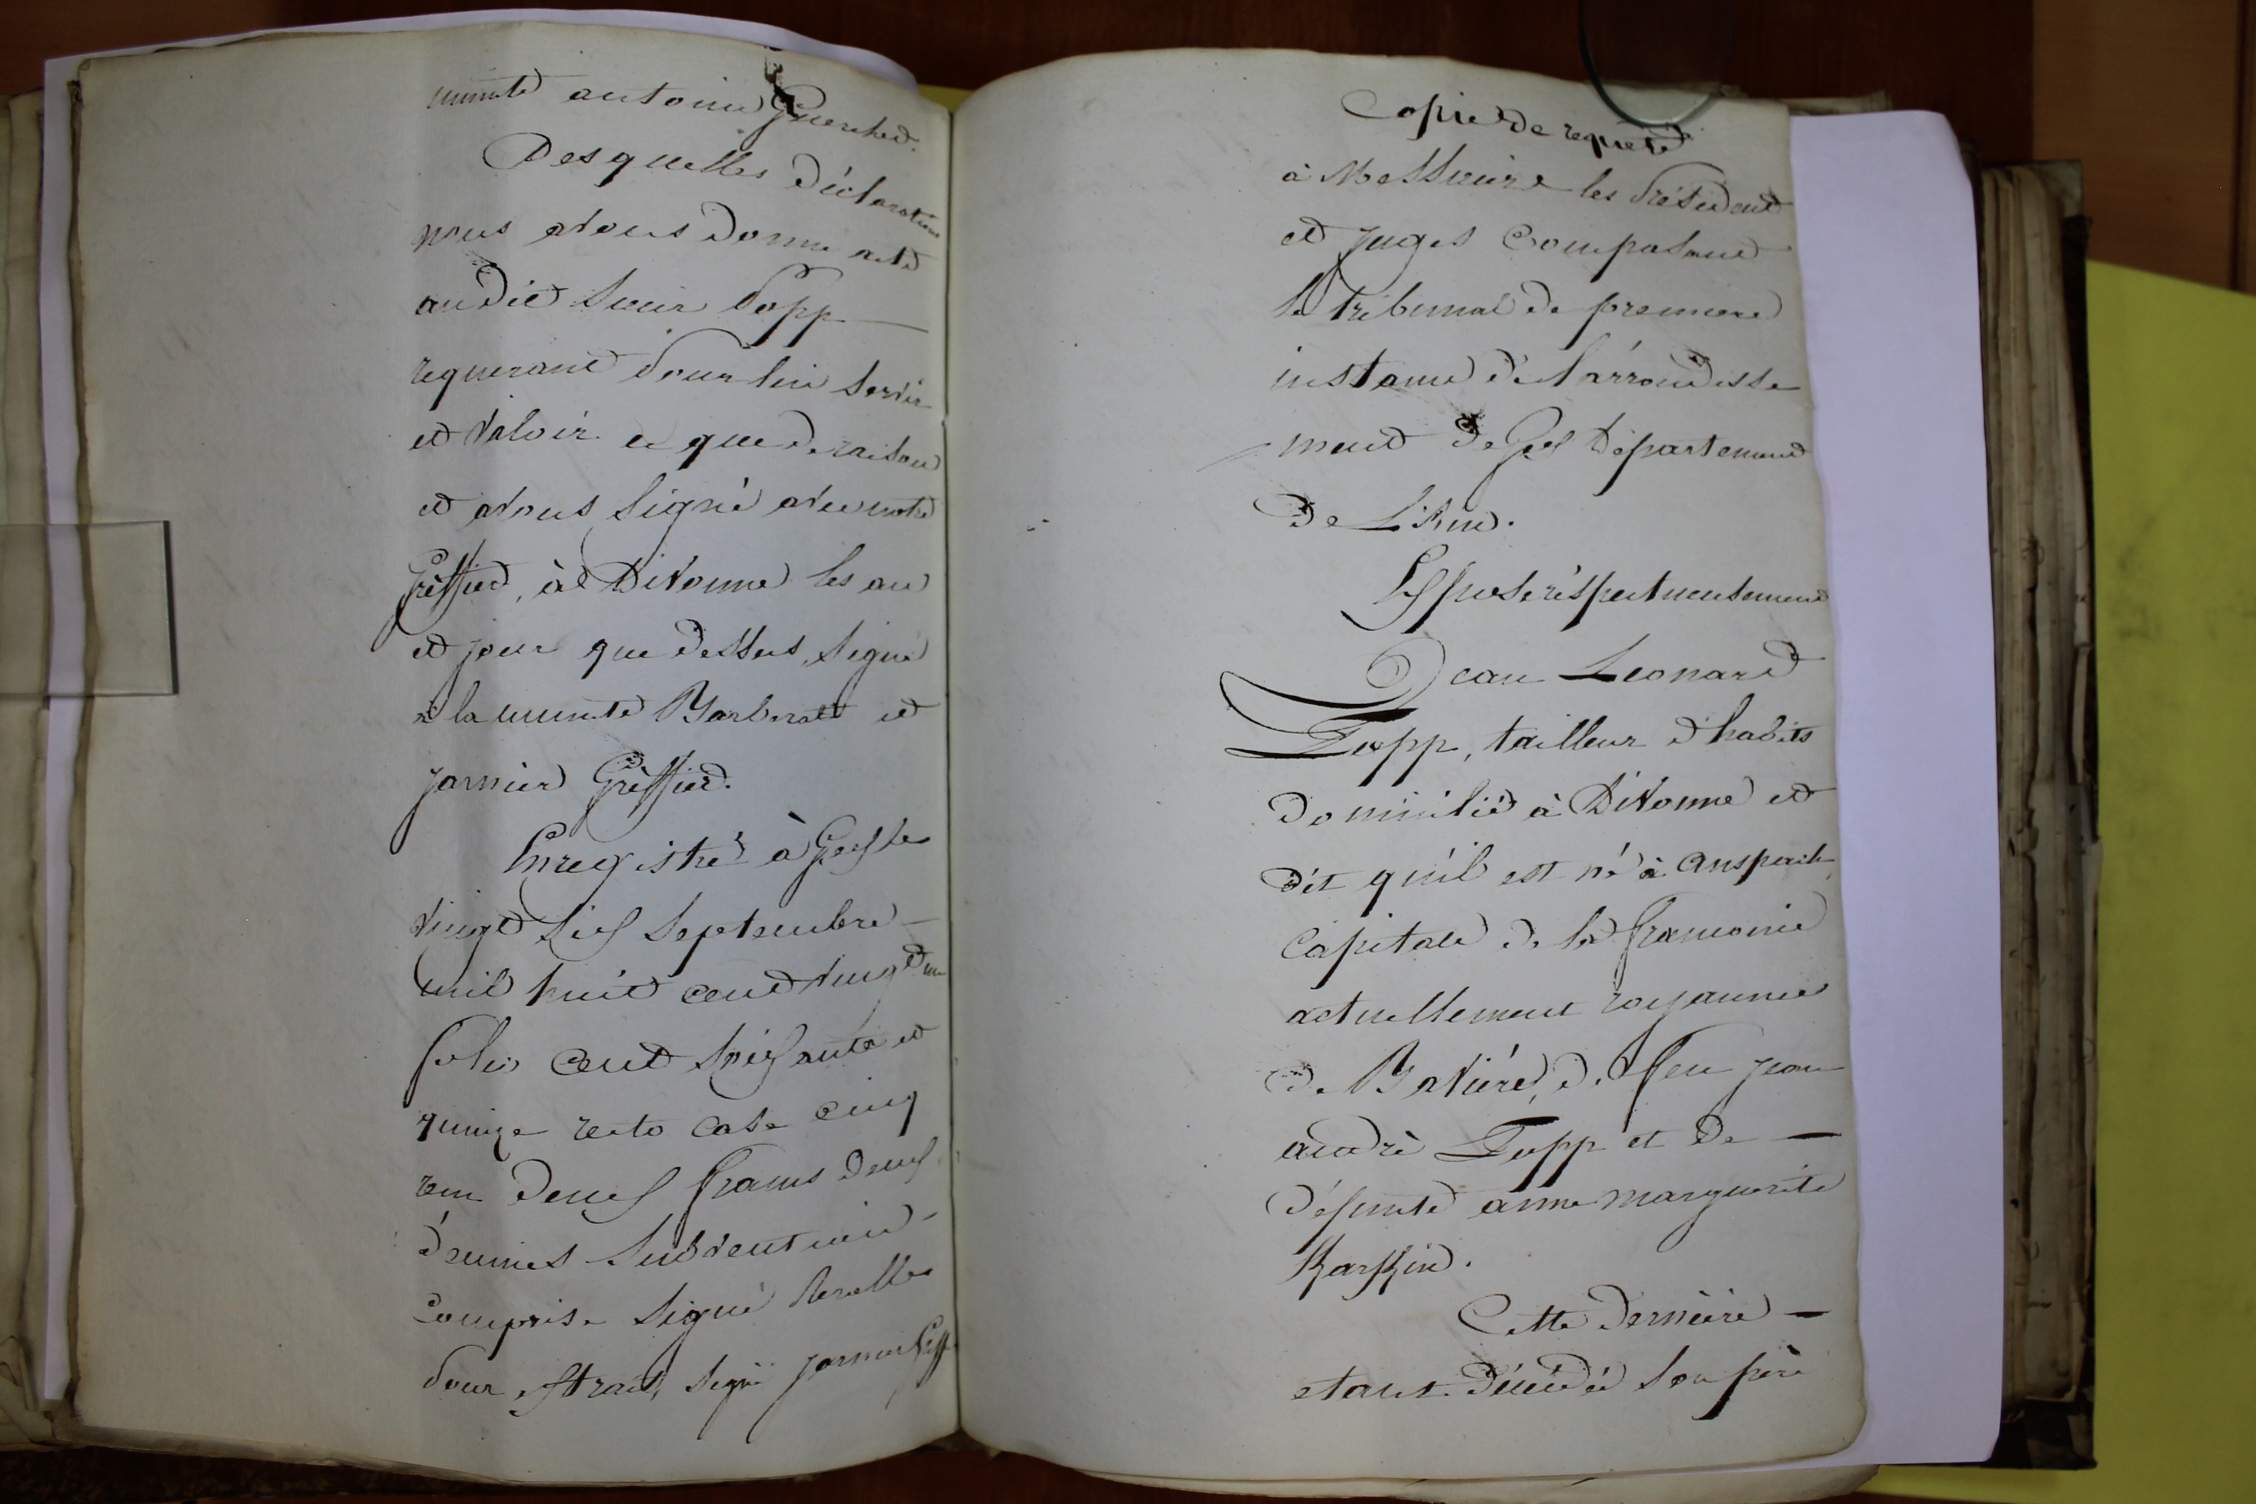 minute antoine Guerchet.
Desquelles déclarations
nous avons donné acte
audit Sieur Popp
requerant pour lui servir
et valoir ce que de raison
et avons signé avec notre
Greffier, à Divonne les an
et jour que dessus, signé
à la minute et
Jarnier Greffier.
Enregistré à Gex le
vingt six Septembre
mil huit cent vingt un
folio cent soixante et
quinze recto case cinq
reçu deux francs deux
décimes subvention
comprise signé
pour extrait, signé Jarnier Greff
Copie de requête
à Messieurs les Président
et Juges composant
le tribunal de premiere
instance de l'arrondisse
ment de Gex Département
de L'Ain.
Expose réspectueusement
Jean Leonard
Popp, tailleur d'habits
domicilié à Divonne et
dit qu'il est né à Anspach
Capitale de la Franconie
actuellement royaume
de Bavière, de feu Jean
andré Popp et de
défunte anne marguerite
Karkin.
Cette dernière
etant décédée son père